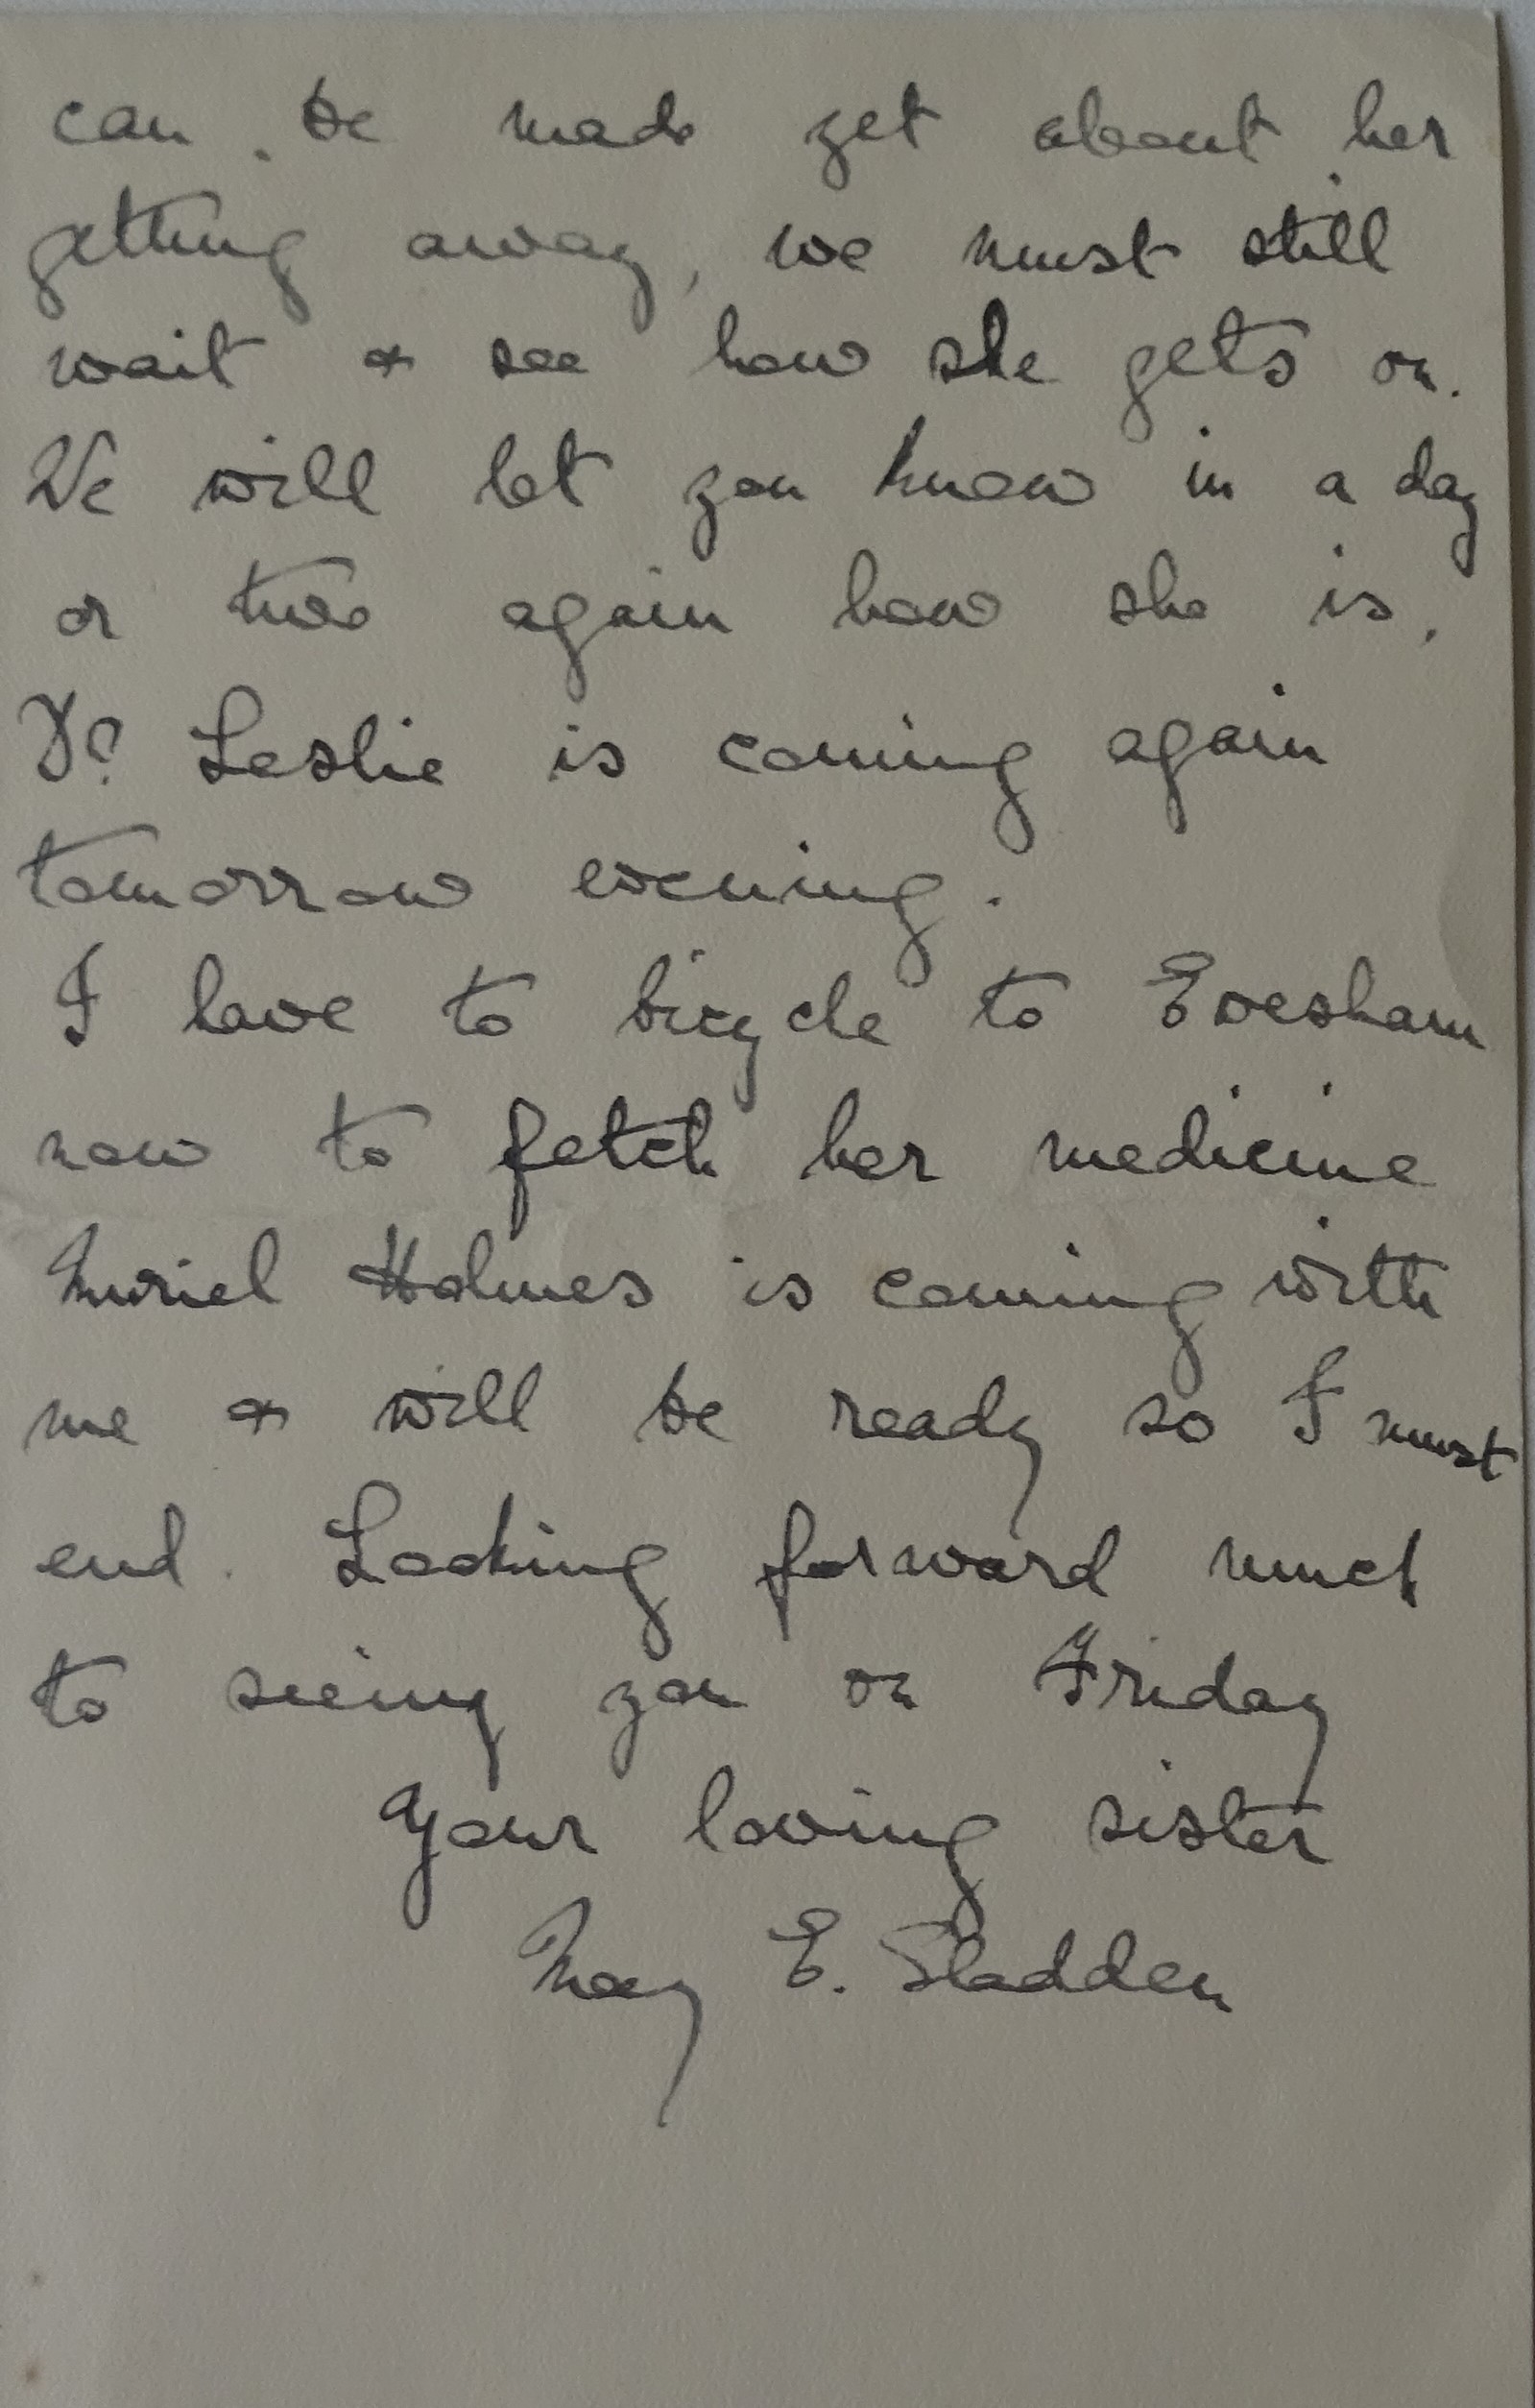 can be made yet about her
getting away, we must still
wait & see how she gets on.
We will let you know in a day
or two again how she is.
Dr Leslie is coming again
tomorrow evening.
I have to bicycle to Evesham
now to fetch her medicine
Muriel Holmes is coming with
me & will be ready so I must
end. Looking forward much
to seeing you on Friday
Your loving sister
May E. Sladden